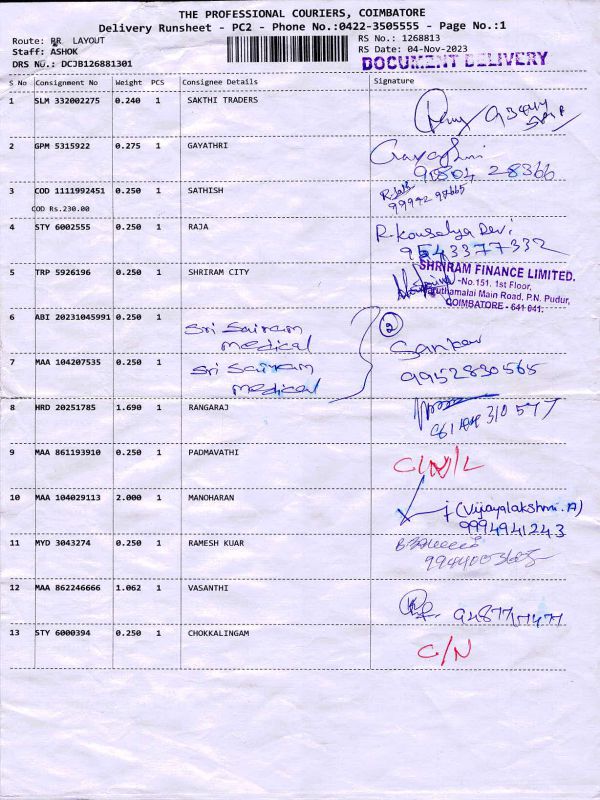 THE PROFESSIONAL COURIERS, COIMBATORE
Delivery Runsheet - PC2 - Phone No.:0422-3505555 - Page No.:1
Route: PR LAYOUT
Staff: ASHOK
DRS No.: DCJB126881301
RS No.: 1268813
RS Date: 04-Nov-2023
DOCUMENT DELIVERY
S No Consignment No Weight PCS Consignee Details Signature
1 SLM 332002275 0.240 1 SAKTHI TRADERS
2 GPM 5315922 0.275 1 GAYATHRI
28366
3 COD 1111992451 0.250 1 SATHISH
COD Rs.230.00
4 STY 6002555 0.250 1 RAJA R. Kousalya Devi
9543377332
5 TRP 5926196 0.250 1 SHRIRAM CITY
SHRIRAM FINANCE LIMITED.
-No.151. 1st Floor,
Maruthamalai Main Road, P.N. Pudur,
COIMBATORE - 641 041.
6 ABI 20231045991 0.250 1 Sri Sairam
medical
2
7 MAA 104207535 0.250 1 Sri Sairam
medical
Sankar
9952830565
8 HRD 20251785 1.690 1 RANGARAJ
9 MAA 861193910 0.250 1 PADMAVATHI
C/N/L
10 MAA 104029113 2.000 1 MANOHARAN
(Vijayalakshmi.A)
9994941243
11 MYD 3043274 0.250 1 RAMESH KUAR
12 MAA 862246666 1.062 1 VASANTHI
13 STY 6000394 0.250 1 CHOKKALINGAM
C/N